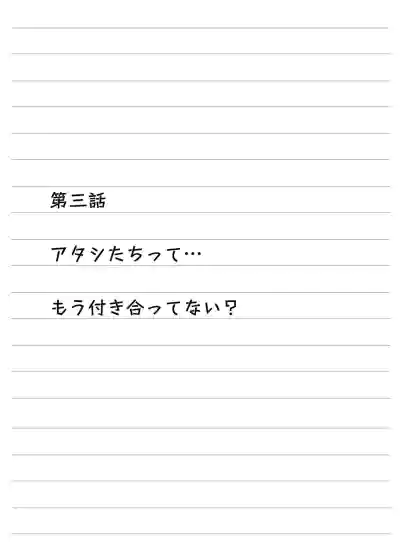 第三話
アタシたちって…
もう付き合ってない？